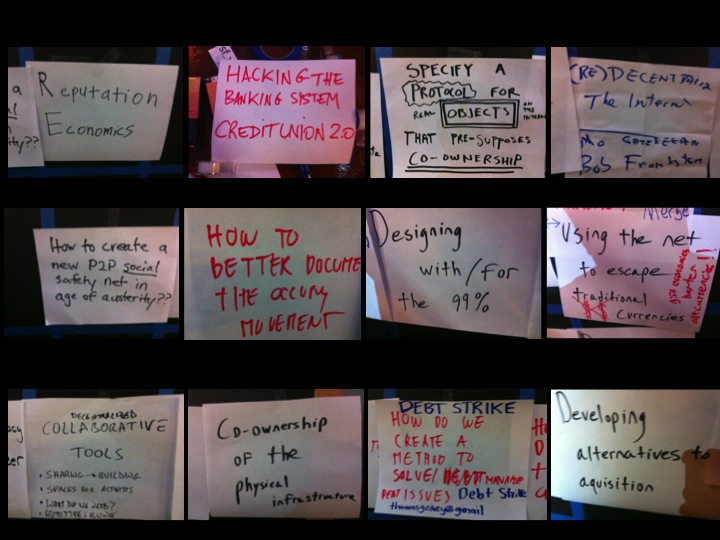 Reputation
Economics
HACKING THE
BANKING SYSTEM
CREDIT UNION 2.0
SPECIFY A
PROTOCOL FOR
REAL OBJECTS ON THE INTERNET
THAT PRE-SUPPOSES
CO-OWNERSHIP
(RE)DECENTRALIZE
The Internet
Bob Frankston
How to create a
new P2P social
safety net in
age of austerity??
HOW TO
BETTER DOCUME
THE OCCUPY
MOVEMENT
Designing
with/for
the 99%
Merge
Using the net
to escape
traditional
currencies
gift economies
barter
alt currencies
!!
DECENTRALIZED
COLLABORATIVE
TOOLS
• SHARING → BUILDING
• SPACES FOR ACTIVISTS
• WHAT DO WE NEED?
Co-ownership
of the
physical
infrastructure
DEBT STRIKE
HOW DO WE
CREATE A
METHOD TO
SOLVE/ MANAGE
DEBT ISSUES Debt Strike
thomasgokey@gmail
Developing
alternatives to
aquisition